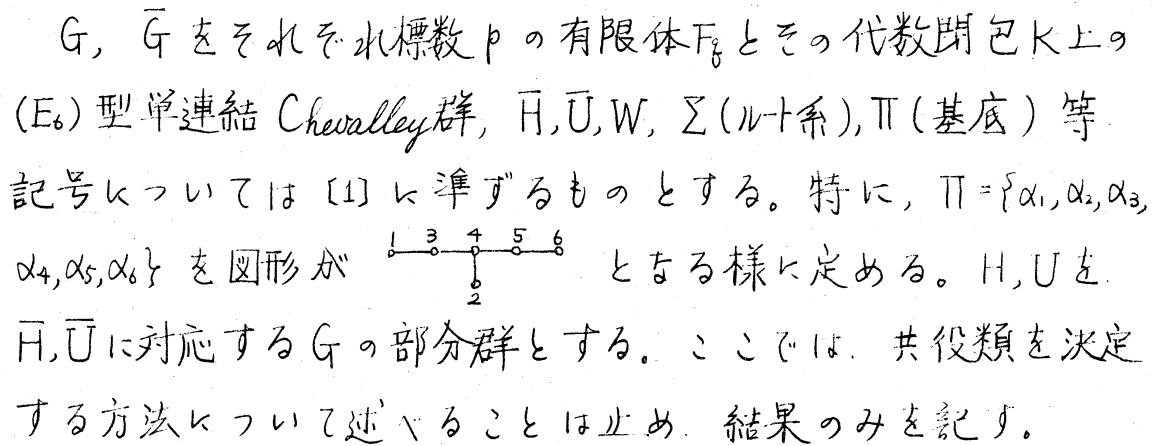 G, G̅ をそれぞれ標数 p の有限体 F_q とその代数閉包 K 上の
(E₆) 型単連結 Chevalley群, H̅, U̅, W, Σ (ルート系), Π (基底) 等
記号については [1] に準ずるものとする。特に, Π = {α₁, α₂, α₃,
α₄, α₅, α₆} を図形が 1 3 4 5 6 2 となる様に定める。H, U を
H̅, U̅ に対応する G の部分群とする。ここでは、共役類を決定
する方法について述べることは止め、結果のみを記す。